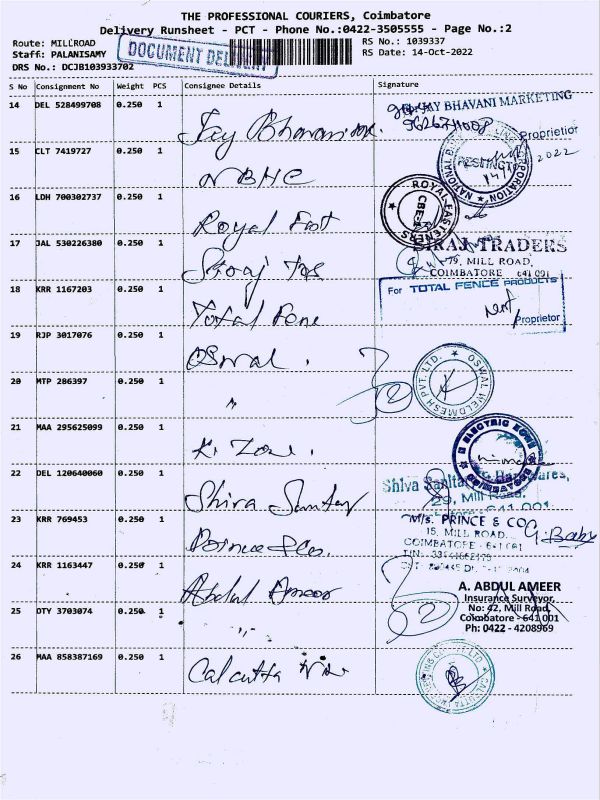 THE PROFESSIONAL COURIERS, Coimbatore
Delivery Runsheet - PCT - Phone No.:0422-3505555 - Page No.:2
Route: MILLROAD
Staff: PALANISAMY
DRS No.: DCJB103933702
DOCUMENT DEL
RS No.: 1039337
RS Date: 14-Oct-2022
S No Consignment No Weight PCS Consignee Details Signature
14 DEL 528499708 0.250 1 Jay Bhavani
JAY BHAVANI MARKETING
Proprietior
15 CLT 7419727 0.250 1 NBHC
2022
16 LDH 700302737 0.250 1 Royal Fast
ROYAL FASTENERS
17 JAL 530226380 0.250 1 Siraj Tds
SIRAJ TRADERS
79, MILL ROAD,
COIMBATORE 641 001
18 KRR 1167203 0.250 1 Total Fene
For TOTAL FENCE PRODUCTS
Proprietor
19 RJP 3017076 0.250 1 Oswal .
OSWAL WELDMESH PVT. LTD.
20 MTP 286397 0.250 1 "
21 MAA 295625099 0.250 1 K. Zone.
ELECTRIC
COIMBATORE
22 DEL 120640060 0.250 1 Shiva Sanitary
Shiva Sanitary Hardwares,
29, Mill Road,
641 001
23 KRR 769453 0.250 1 Prince &Co.
M/s. PRINCE & CO
15, MILL ROAD,
COIMBATORE - 641 001
G. Baby
24 KRR 1163447 0.250 1 Abdul Ameer
A. ABDUL AMEER
Insurance Surveyor,
No: 42, Mill Road,
Coimbatore - 641 001
Ph: 0422 - 4208969
25 OTY 3703074 0.250 1 "
26 MAA 858387169 0.250 1 Calcutta